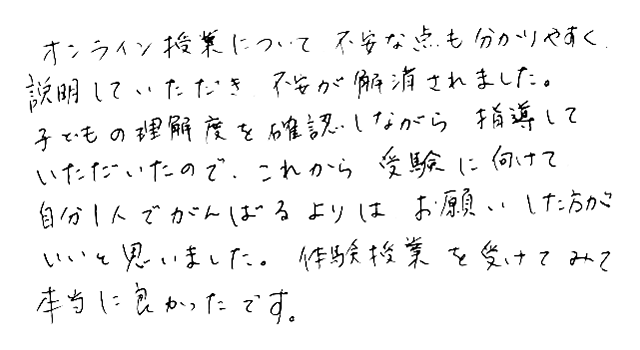 オンライン授業について 不安な点も分かりやすく
説明していただき 不安が解消されました。
子どもの理解度を確認しながら 指導して
いただいたので、これから 受験に向けて
自分1人でがんばるよりは お願いした方が
いいと思いました。体験授業を受けてみて
本当に良かったです。